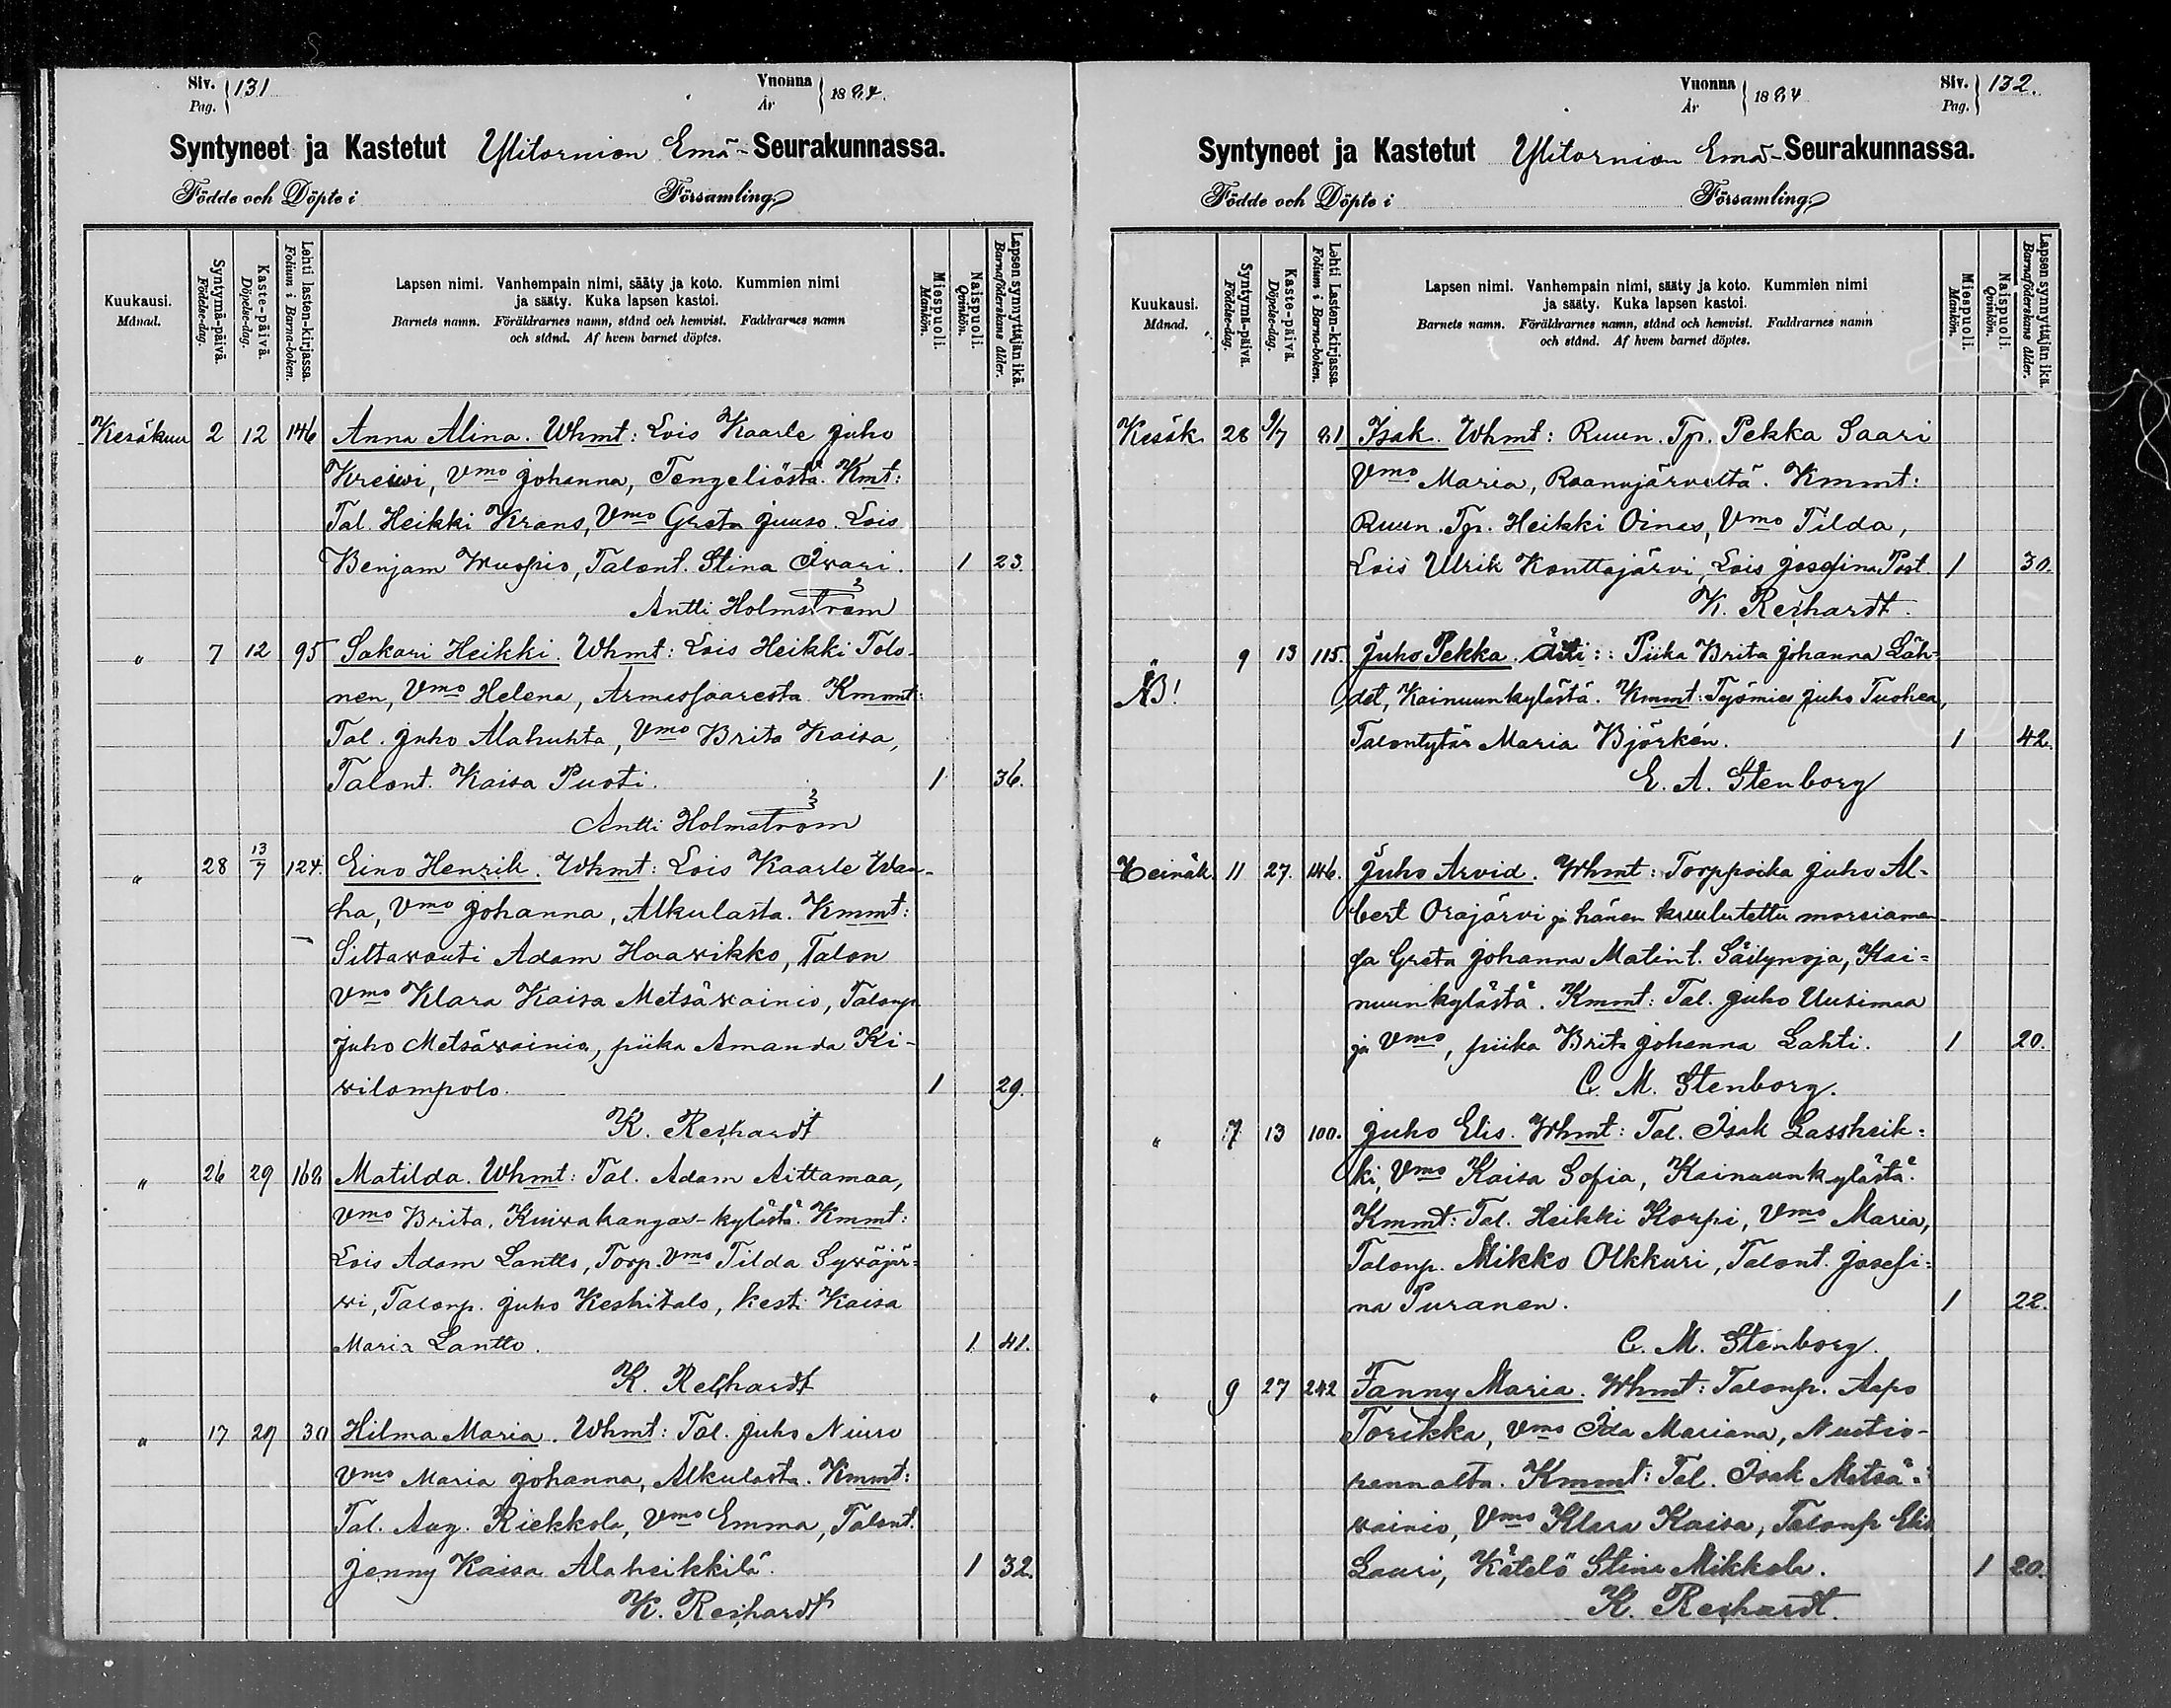 Siv. Pag. 131 Vuonna År 1884.
Syntyneet ja Kastetut Ylitornion Emä-Seurakunnassa.
Födde och Döpte i Församling
Kuukausi. Månad.
Syntymä-päivä. Födelse-dag.
Kaste-päivä. Döpelse-dag.
Lehti lasten-kirjassa. Folium i Barna-boken.
Lapsen nimi. Vanhempain nimi, sääty ja koto. Kummien nimi
ja sääty. Kuka lapsen kastoi.
Barnets namn. Föräldrarnes namn, stånd och hemvist. Faddrarnes namn
och stånd. Af hvem barnet döptes.
Miespuoli. Mankön.
Naispuoli. Qvinkön.
Lapsen synnyttäjän ikä. Barnaföderskans ålder.
Kesäkuu 2 12 146 Anna Alina. Whmt: Lois Kaarle Juho
Kreiwi, Vmo Johanna, Tengeliöstä. Kmt:
Tal. Heikki Krans, Vmo Greta Juuso. Lois
Benjam Wuopio, Talont. Stina Iwari. 1 23.
Antti Holmström
" 7 12 95 Sakari Heikki. Whmt: Lois Heikki Tolo-
nen, Vmo Helena, Armassaaresta. Kmmt:
Tal. Juho Alahuhta, Vmo Brita Kaisa,
Talont. Kaisa Puoti. 1 36.
Antti Holmström
" 28 13/7 124. Eino Henrik. Whmt: Lois Kaarle Wan-
ha, Vmo Johanna, Alkulasta. Kmmt:
Siltawouti Adam Haawikko, Talon
Vmo Klara Kaisa Metsäwainio, Talonp.
Juho Metsäwainio, piika Amanda Ki-
wilompolo. 1 29.
K. Reihardt
" 26 29 168 Matilda. Whmt: Tal. Adam Aittamaa,
Vmo Brita, Kuiwakangas-kylästä. Kmmt:
Lois Adam Lantto, Torp. Vmo Tilda Sywäjär-
wi, Talonp. Juho Keskitalo, kesti Kaisa
Maria Lantto. 1 41.
K. Reihardt
" 17 29 30 Hilma Maria. Whmt: Tal. Juho Niuro
Vmo Maria Johanna, Alkulasta. Kmmt:
Tal. Aug. Riekkola, Vmo Emma, Talont.
Jenny Kaisa Alaheikkilä. 1 32.
K. Reihardt
Vuonna År 1884 Siv. Pag. 132.
Syntyneet ja Kastetut Ylitornion Emä-Seurakunnassa.
Födde och Döpte i Församling
Kuukausi. Månad.
Syntymä-päivä. Födelse-dag.
Kaste-päivä. Döpelse-dag.
Lehti Lasten-kirjassa. Folium i Barna-boken.
Lapsen nimi. Vanhempain nimi, sääty ja koto. Kummien nimi
ja sääty. Kuka lapsen kastoi.
Barnets namn. Föräldrarnes namn, stånd och hemvist. Faddrarnes namn
och stånd. Af hvem barnet döptes.
Miespuoli. Mankön.
Naispuoli. Qvinkön.
Lapsen synnyttäjän ikä. Barnaföderskans ålder.
Kesäk. 28 9/7 81 Isak. Whmt: Ruun. Tp. Pekka Saari
Vmo Maria, Raanujärveltä. Kmmt:
Ruun. Tp. Heikki Oinas, Vmo Tilda,
Lois Ulrik Konttajärvi, Lois Josefina Post. 1 30.
K. Reihardt.
" 9 13 115. Juho Pekka. Äiti: Piika Brita Johanna Läh-
NB! det, Kainuunkylästä. Kmmt: Työmies Juho Tuohea,
Talontytär Maria Björkén. 1 42.
E. A. Stenborg
Heinäk. 11 27. 146. Juho Arvid. Whmt: Torppoika Juho Al-
bert Orajärvi ja hänen kuulutettu morsiamen-
sa Greta Johanna Matint. Säilynoja, Kai-
nuunkylästä. Kmmt: Tal. Juho Uusimaa
ja Vmo, piika Brita Johanna Lahti. 1 20.
C. M. Stenborg.
" 7 13 100. Juho Elis. Whmt: Tal. Isak Lassheik-
ki, Vmo Kaisa Sofia, Kainuunkylästä.
Kmmt: Tal. Heikki Korpi, Vmo Maria,
Talonp. Mikko Olkkuri, Talont. Josefi-
na Puranen. 1 22.
C. M. Stenborg.
" 9 27 242 Fanny Maria. Whmt: Talonp. Aapo
Torikka, Vmo Ida Mariana, Nuotio-
rannalta. Kmmt: Tal. Isak Metsä-
wainio, Vmo Klara Kaisa, Talonp Elis
Lauri, Kätelö Stina Mikkola. 1 20.
K. Reihardt.